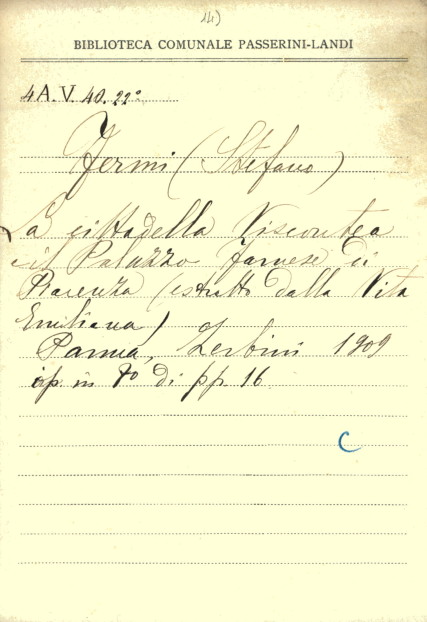 14)
BIBLIOTECA COMUNALE PASSERINI-LANDI
4A.V. 40.22°
Fermi (Stefano)
La cittadella Viscontea
e il Palazzo Farnese di
Piacenza (estratto dalla Vita
Emiliana)
Parma, Zerbini 1909
op. in 8° di pp. 16
C